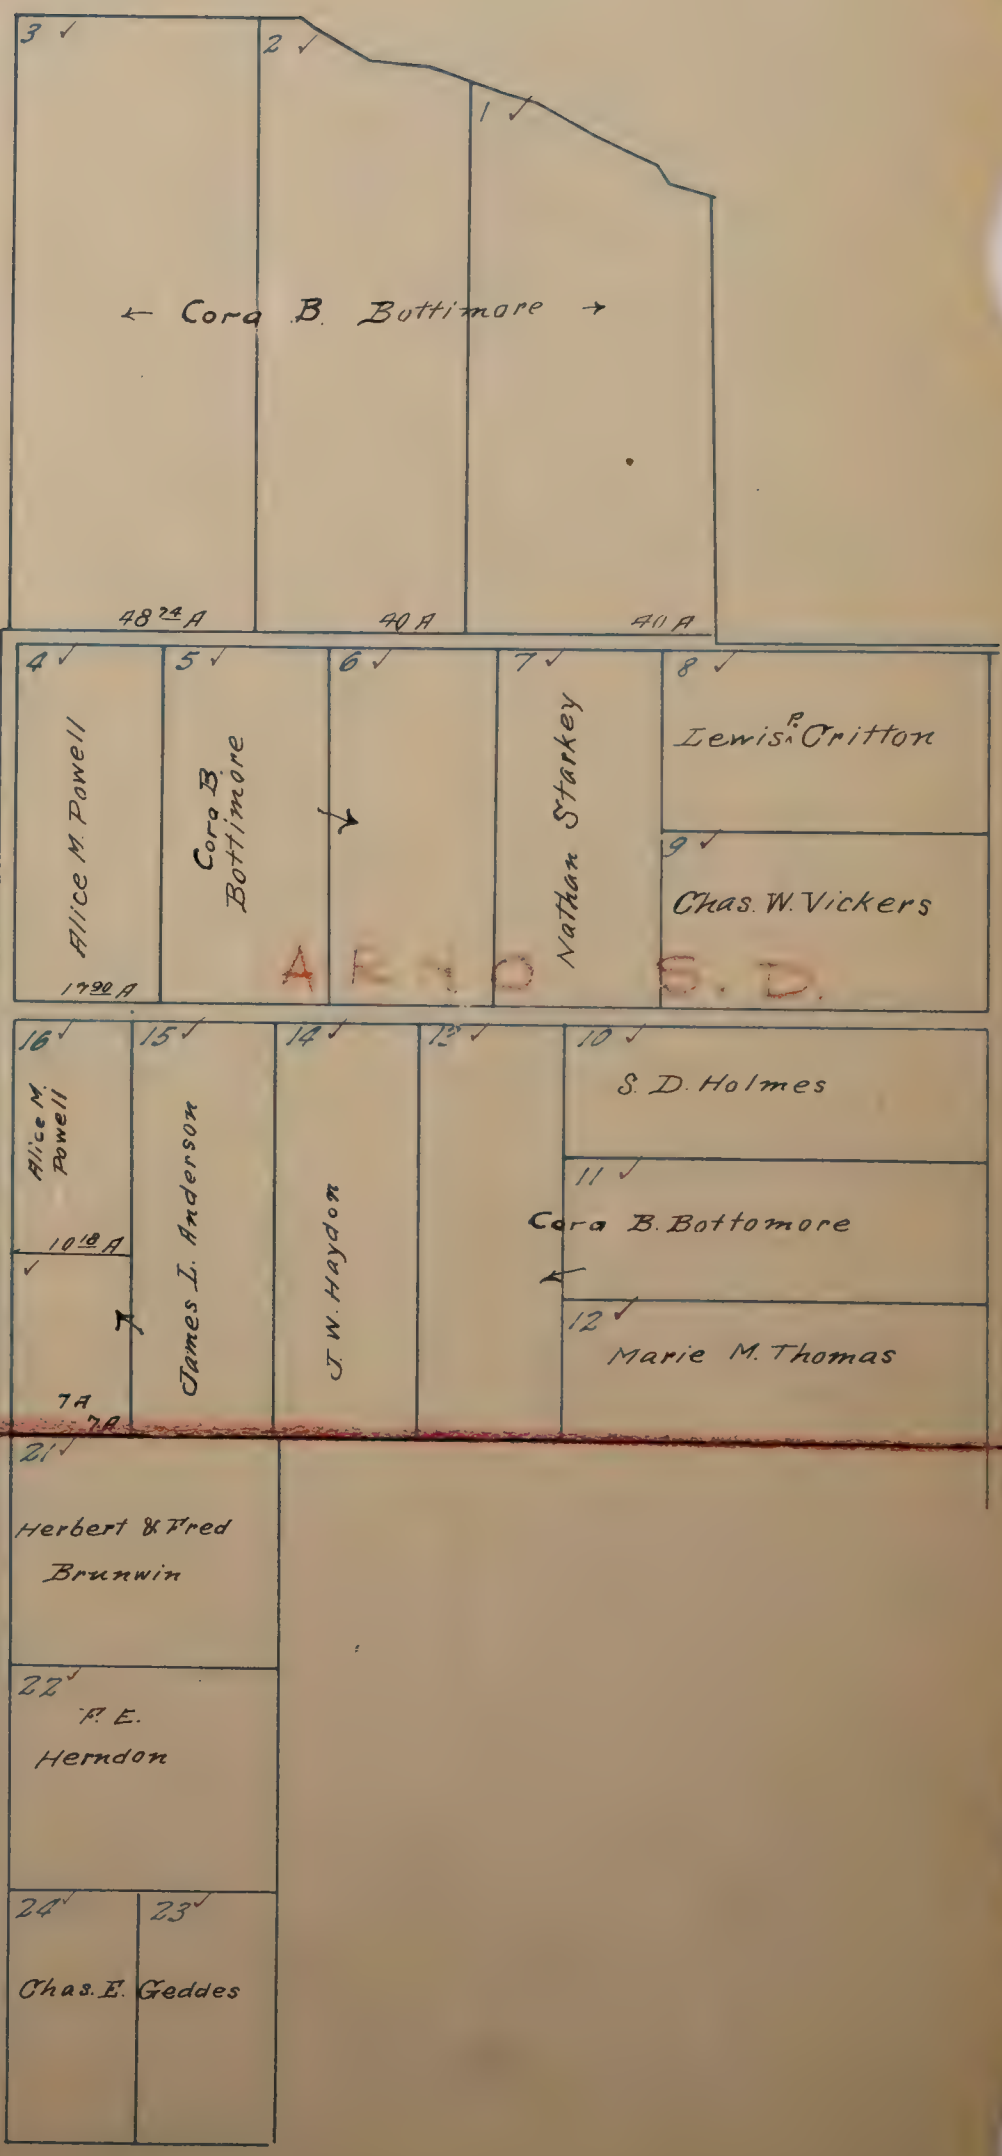 3 ✓
2 ✓
1 ✓
← Cora B. Bottimore →
48 74 A
40 A
40 A
4 ✓
Alice M. Powell
17 90 A
5 ✓
Cora B
Bottimore
6 ✓
7 ✓
Nathan Starkey
8 ✓
Lewis P. Critton
9 ✓
Chas. W. Vickers
ARNO S.D.
16 ✓
Alice M.
Powell
10 18 A
✓
7 A
7 A
15 ✓
James L. Anderson
14 ✓
J. W. Haydon
13 ✓
10 ✓
S. D. Holmes
11 ✓
Cora B. Bottomore
12 ✓
Marie M. Thomas
21 ✓
Herbert & Fred
Brunwin
22 ✓
F. E.
Herndon
24 ✓
23 ✓
Chas. E. Geddes